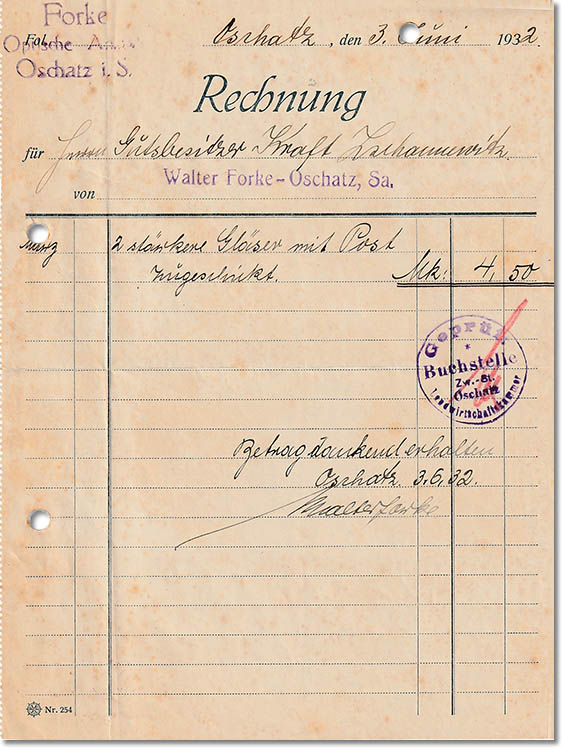 Forke
Fol.
Optische
Oschatz i. S.
Oschatz, den 3. Juni 1932.
Rechnung
für Herrn Gutsbesitzer Kraft Zschannewitz.
Walter Forke-Oschatz, Sa.
von
März 2 stärkere Gläser mit Post
zugeschickt. Mk: 4,50
Geprüft
*
Buchstelle
Zw.-St.
Oschatz
Landwirtschaftskammer
Betrag dankend erhalten
Oschatz 3.6.32.
Walter Forke
Nr. 254